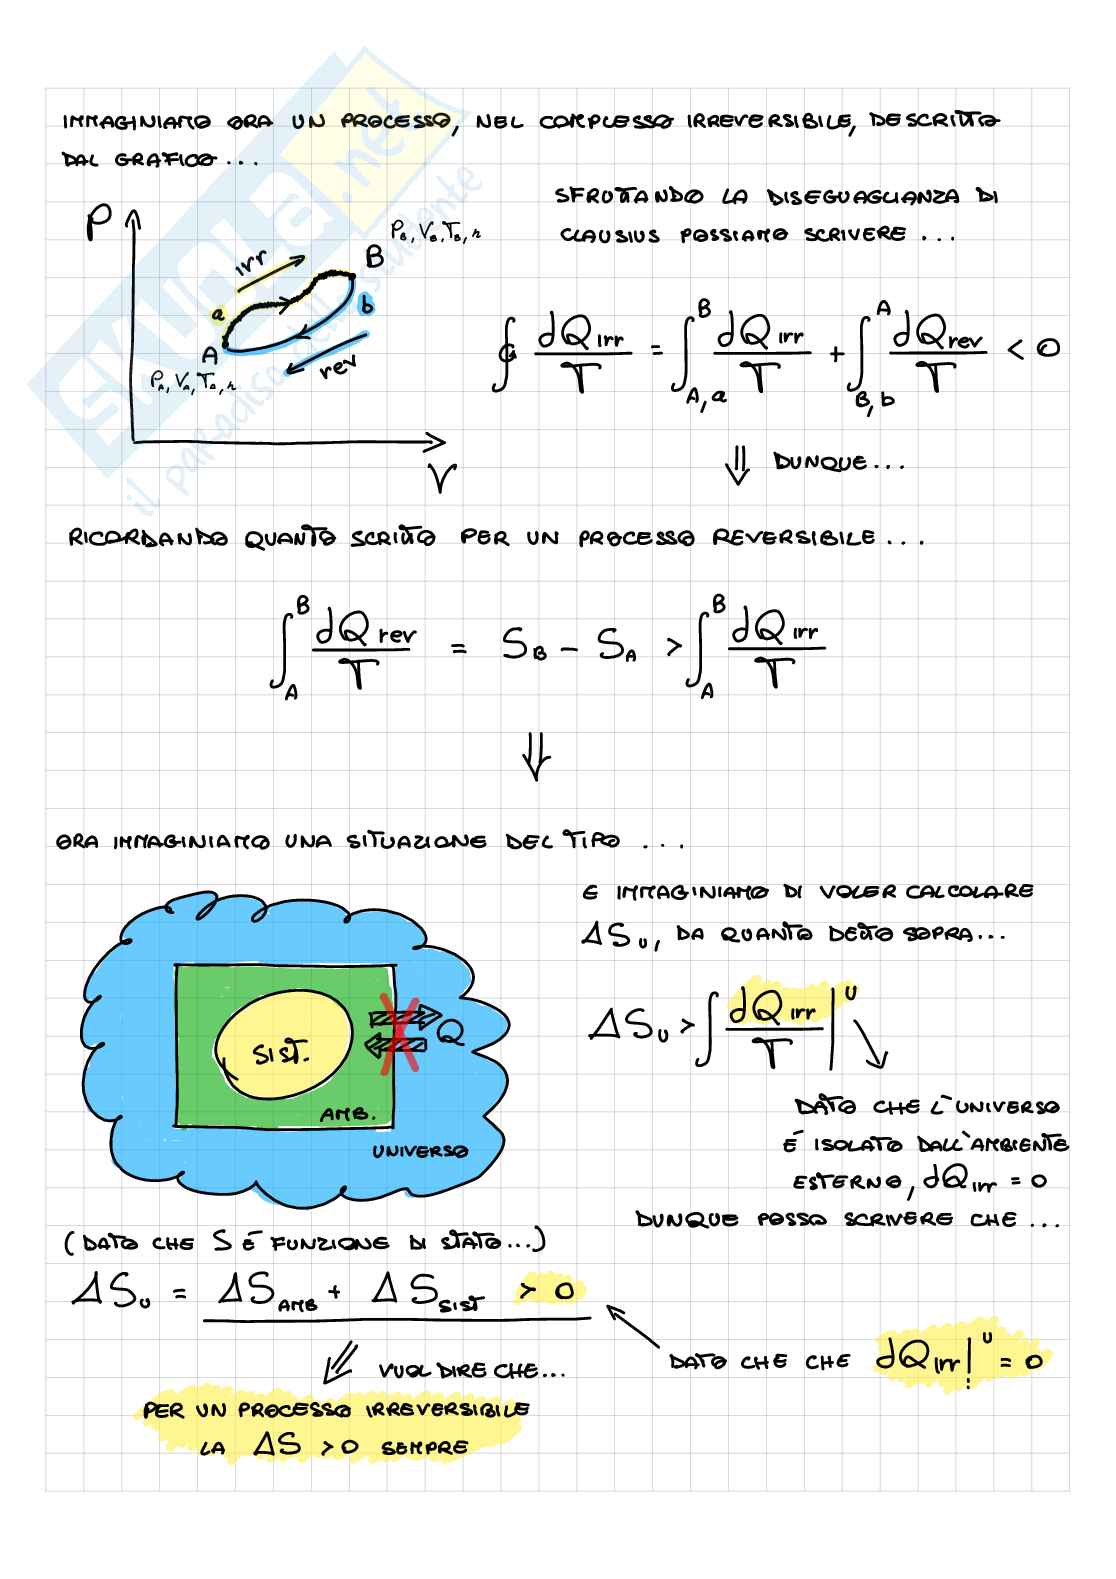 IMMAGINIAMO ORA UN PROCESSO, NEL COMPLESSO IRREVERSIBILE, DESCRITTO
DAL GRAFICO...
P
irr
a
A
P_A, V_A, T_A, n
P_B, V_B, T_B, n
B
b
rev
V
SKUOLA.net
il paradiso dello studente
SFRUTTANDO LA DISEGUAGLIANZA DI
CLAUSIUS POSSIAMO SCRIVERE ...
∮ dQ_irr/T = ∫_{A,a}^{B} dQ_irr/T + ∫_{B,b}^{A} dQ_rev/T < 0
⇓ DUNQUE...
RICORDANDO QUANTO SCRITTO PER UN PROCESSO REVERSIBILE...
∫_A^B dQ_rev/T = S_B - S_A > ∫_A^B dQ_irr/T
⇓
ORA IMMAGINIAMO UNA SITUAZIONE DEL TIPO ...
SIST.
AMB.
UNIVERSO
Q
E IMMAGINIAMO DI VOLER CALCOLARE
ΔS_U, DA QUANTO DETTO SOPRA...
ΔS_U > ∫ dQ_irr/T |^U
DATO CHE L'UNIVERSO
È ISOLATO DALL'AMBIENTE
ESTERNO, dQ_irr = 0
DUNQUE POSSO SCRIVERE CHE ...
(DATO CHE S È FUNZIONE DI STATO...)
ΔS_U = ΔS_AMB + ΔS_SIST > 0
DATO CHE CHE dQ_irr|^U = 0
VUOL DIRE CHE...
PER UN PROCESSO IRREVERSIBILE
LA ΔS > 0 SEMPRE